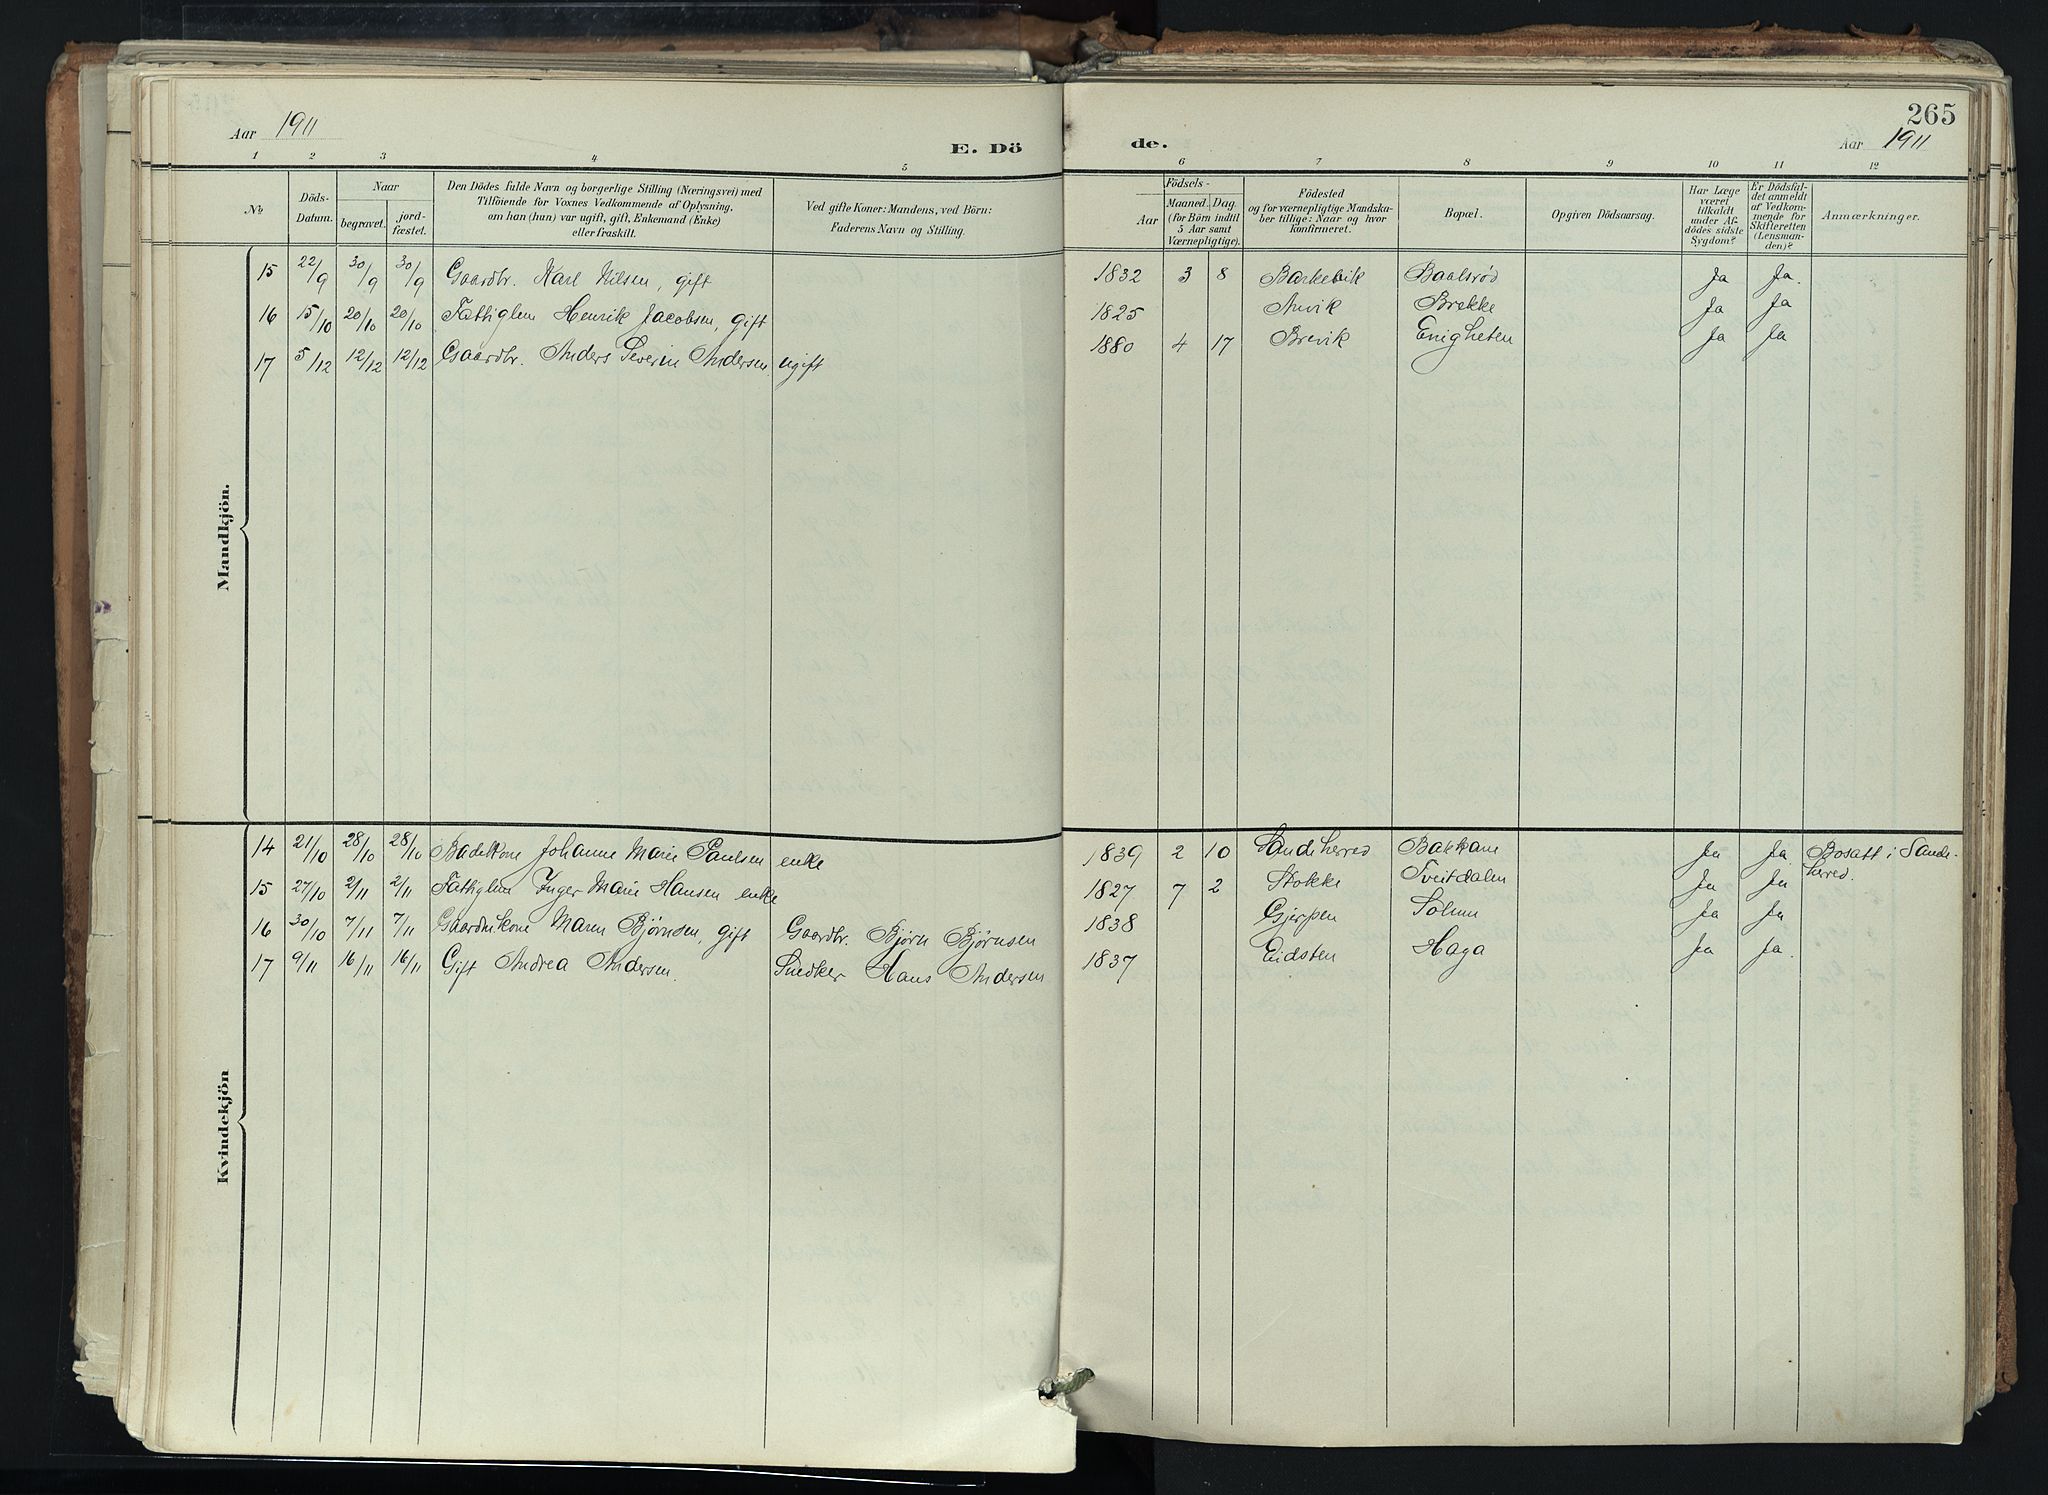 265
Aar 1911
E. Dö
de.
Aar 1911
1 2 3 4 5 6 7 8 9 10 11 12
№
Döds-
Datum.
Naar
begravet.
jord-
fæstet.
Den Dödes fulde Navn og borgerlige Stilling (Næringsvei) med
Tilföiende for Voxnes Vedkommende af Oplysning,
om han (hun) var ugift, gift, Enkemand (Enke)
eller fraskilt.
Ved gifte Koner: Mandens, ved Börn:
Faderens Navn og Stilling.
Födsels-
Aar
Maaned. Dag.
(for Börn indtil
5 Aar samt
Værnepligtige).
Födested
og for værnepligtige Mandska-
ber tillige: Naar og hvor
konfirmeret.
Bopæl.
Opgiven Dödsaarsag.
Har Læge
været
tilkaldt
under Af-
dödes sidste
Sygdom?
Er Dödsfal-
det anmeldt
af Vedkom-
mende for
Skifteretten
(Lensman-
den)?
Anmærkninger.
Mandkjön.
15 22/9 30/9 30/9 Gaardbr. Karl Nilsen, gift 1832 3 8 Barkevik Baalsrød Ja Ja.
16 15/10 20/10 20/10 Fattiglem Henrik Jacobsen, gift 1825 Anvik Brekke Ja Ja
17 5/12 12/12 12/12 Gaardbr. Anders Severin Andersen ugift 1880 4 17 Brevik Enigheten Ja Ja
Kvindekjön
14 21/10 28/10 28/10 Badekone Johanne Marie Paulsen enke 1839 2 10 Sandeherred Bakkane Ja Ja Bosatt i Sande-
herred.
15 27/10 2/11 2/11 Fattiglem Inger Marie Hansen enke 1827 7 2 Stokke Tveitdalen Ja Ja
16 30/10 7/11 7/11 Gaardmkone Maren Bjørnsen, gift Gaardbr. Bjørn Bjørnsen 1838 Gjerpen Solum Ja Ja
17 9/11 16/11 16/11 Gift Andrea Andersen. Snedker Hans Andersen 1837 Eidsten Haga Ja Ja.